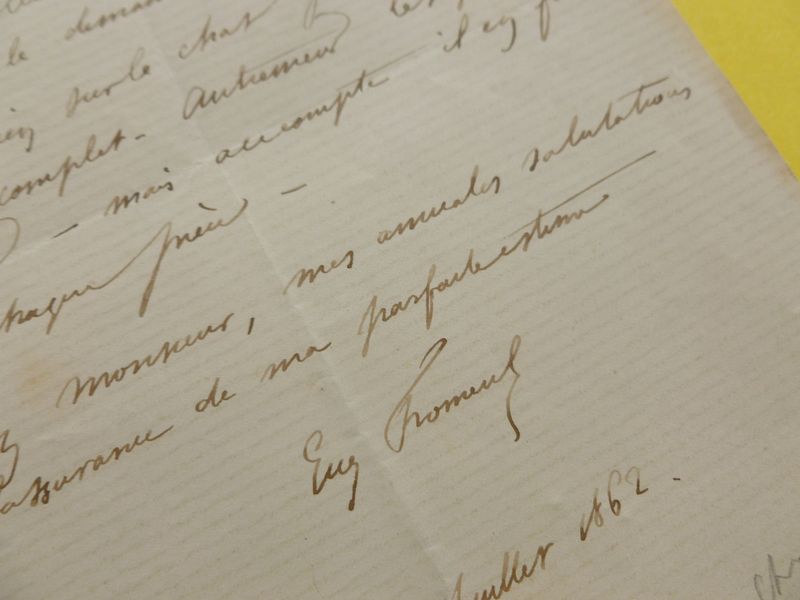 le deman
sur le chat
complet - Autrement les
- mais accompte il en f
chaque pièce -
Monsieur, mes amicales salutations
assurance de ma parfaite estime
Eug Froment
Juillet 1862.